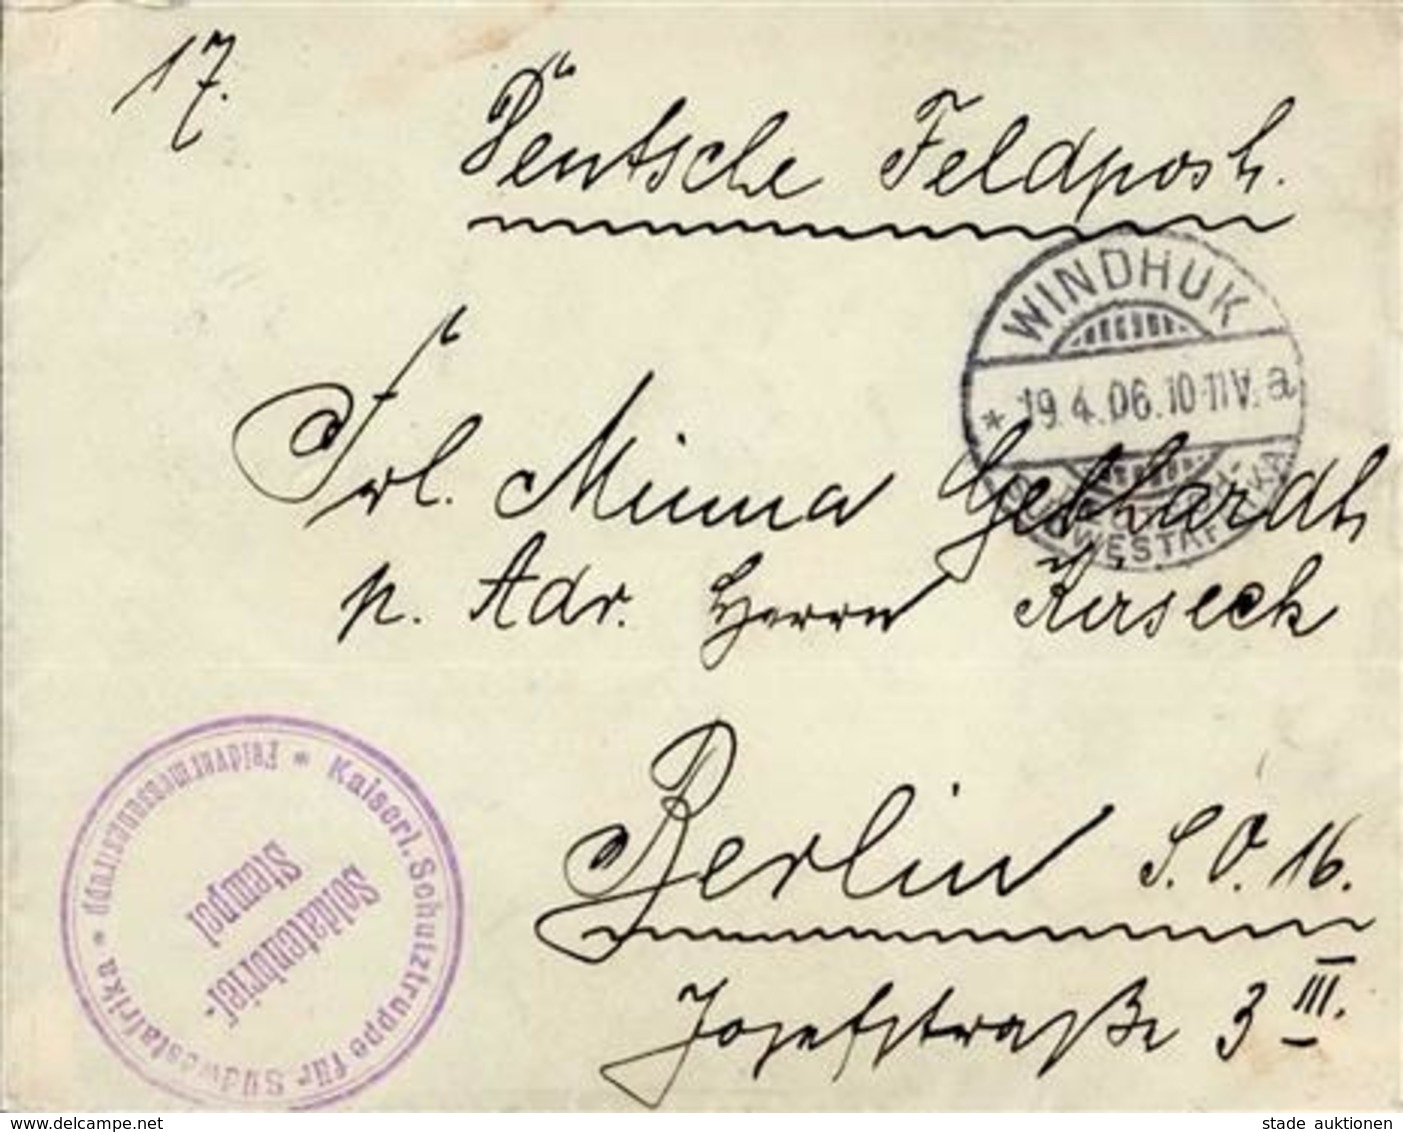 17.
Deutsche Feldpost.
WINDHUK
* 19.4.06.10-11V. a
DEUTSCH-
SÜDWESTAFRIKA
Frl. Minna Gebhardt
p. Adr. Herrn Kirseck
Berlin S.O. 16.
Josefstraße 3 III.
Kaiserl. Schutztruppe für Südwestafrika * Feldvermessungstrupp *
Soldatenbrief-
Stempel
www.delcampe.net
stade auktionen